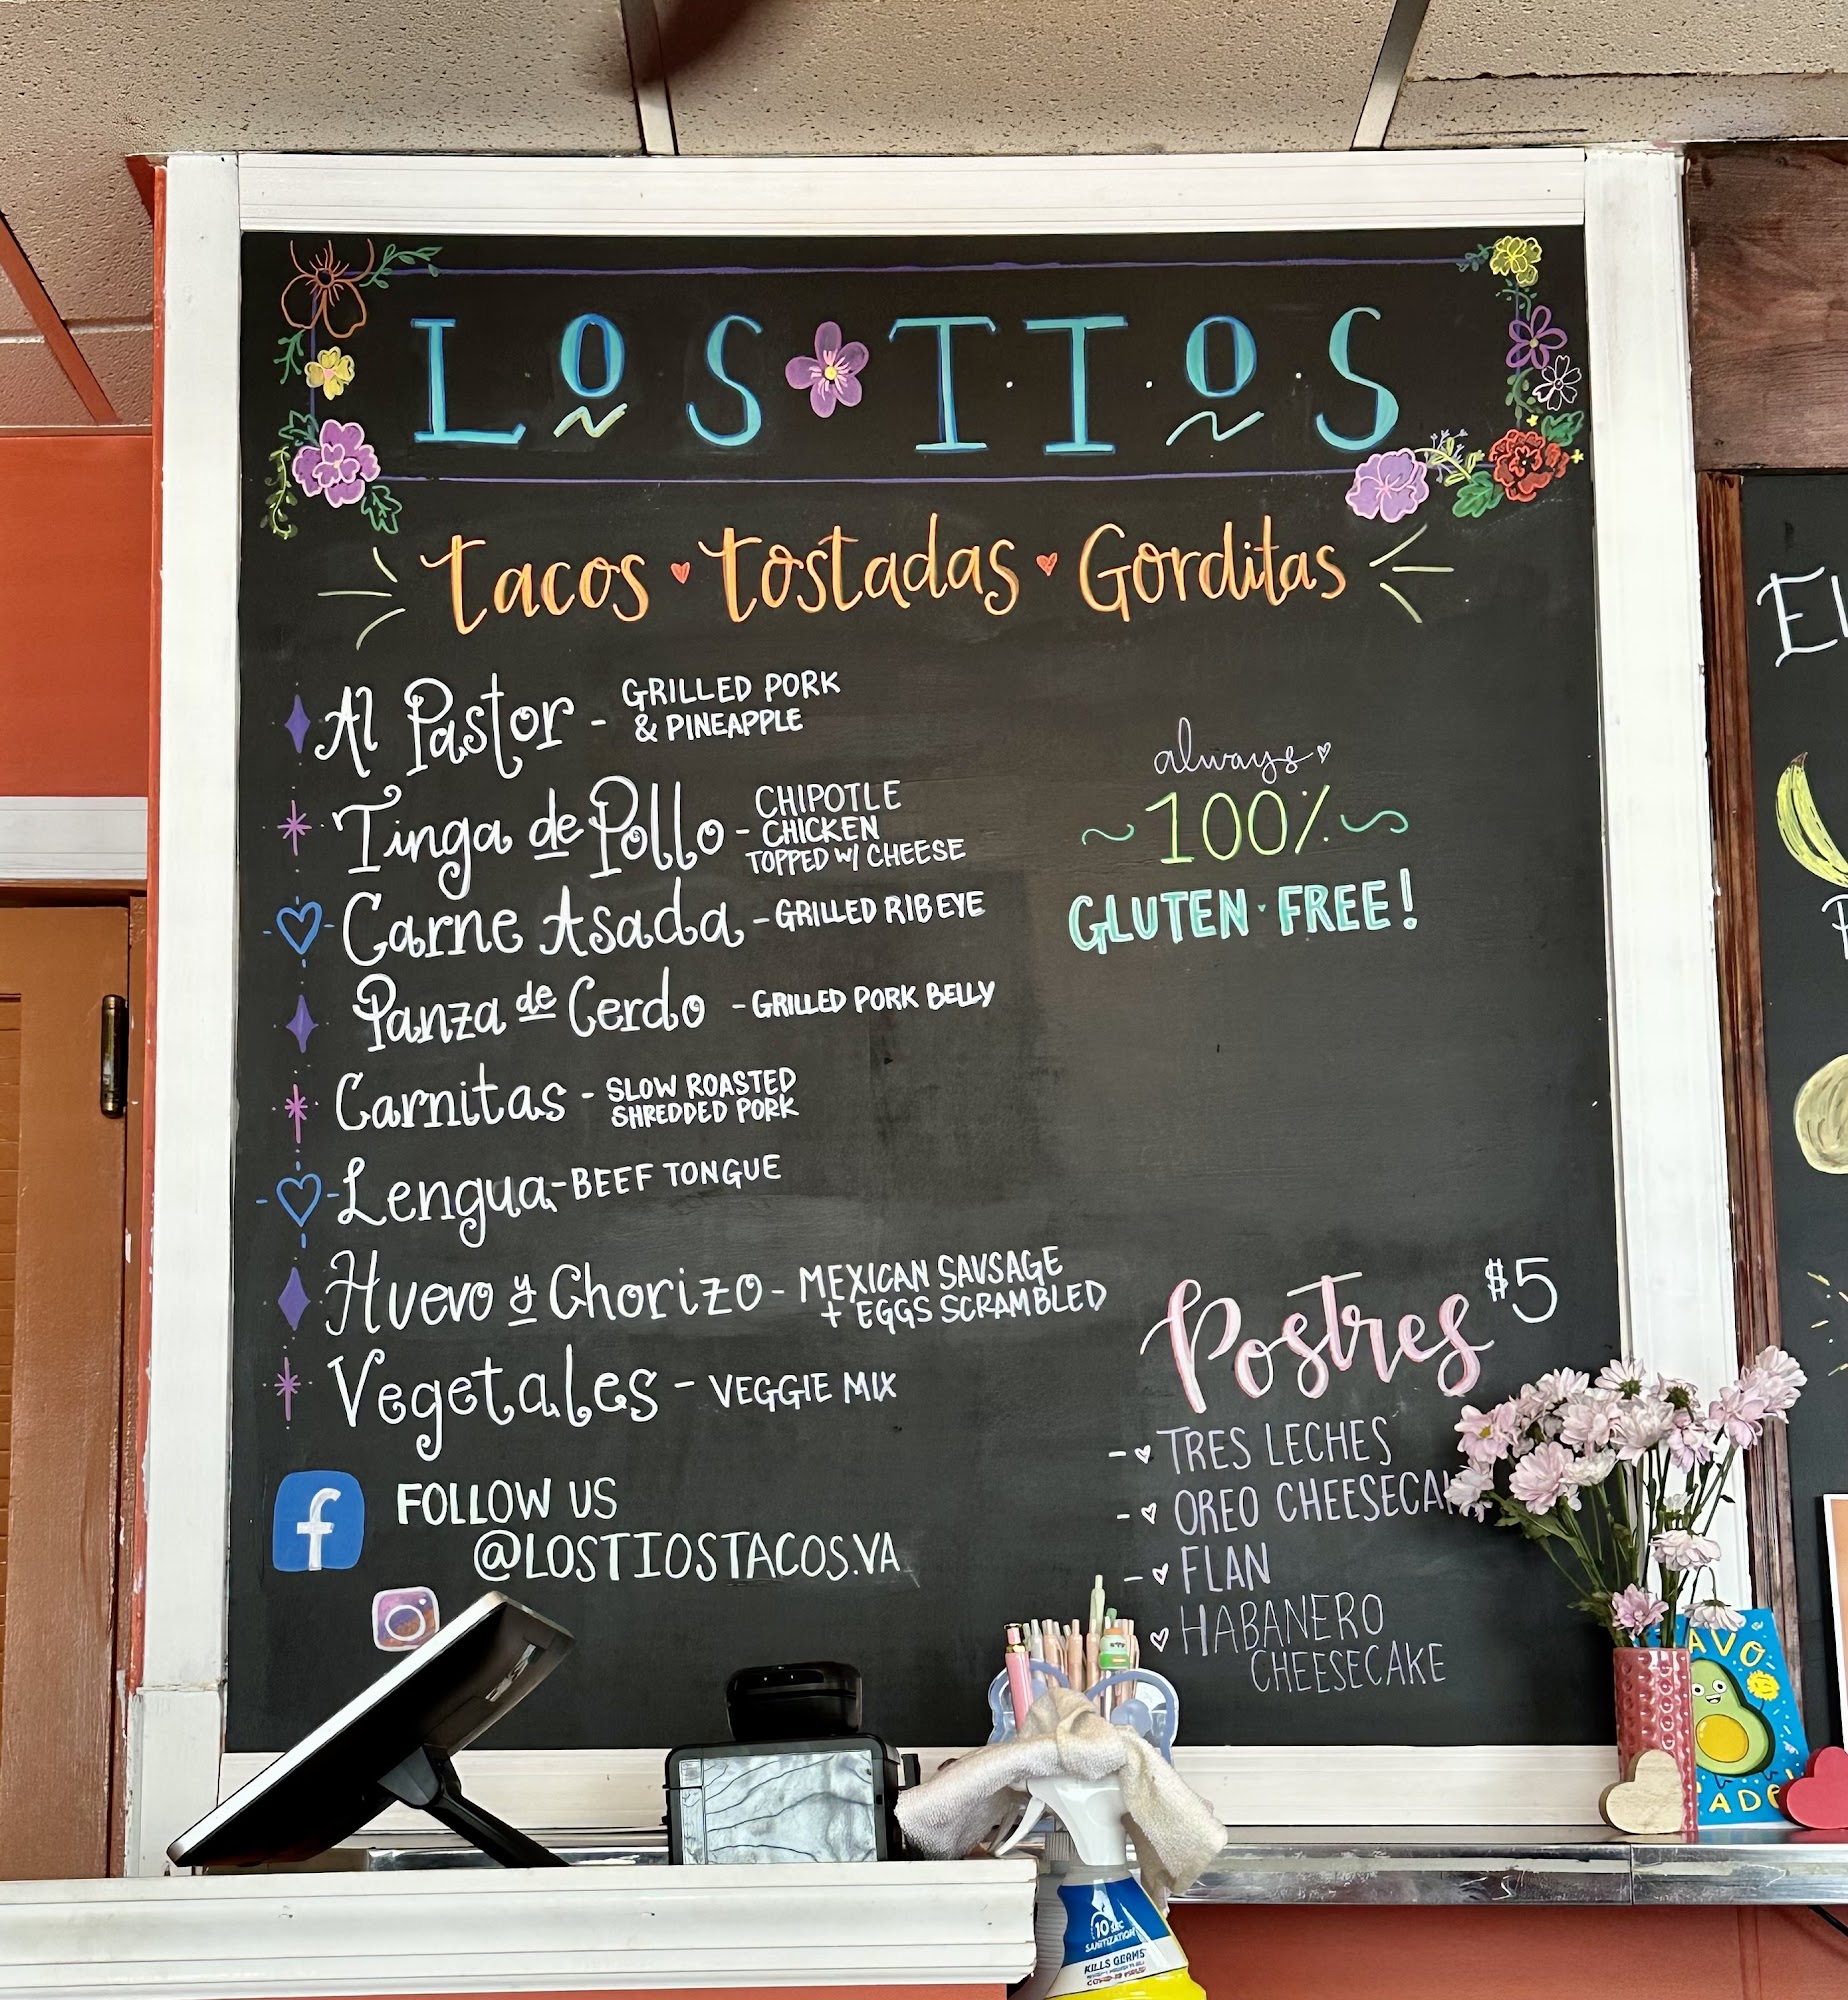 LOS TIOS
tacos tostadas Gorditas
Al Pastor - GRILLED PORK
& PINEAPPLE
Tinga de Pollo - CHIPOTLE
CHICKEN
TOPPED W/ CHEESE
Carne Asada - GRILLED RIBEYE
Panza de Cerdo - GRILLED PORK BELLY
Carnitas - SLOW ROASTED
SHREDDED PORK
Lengua - BEEF TONGUE
Huevo y Chorizo - MEXICAN SAUSAGE
+ EGGS SCRAMBLED
Vegetales - VEGGIE MIX
always
100%
GLUTEN FREE!
Postres $5
- TRES LECHES
- OREO
- FLAN
HABANERO
CHEESECAKE
f FOLLOW US
@LOSTIOSTACOS.VA
10 SEC
SANITIZATION
KILLS GERMS